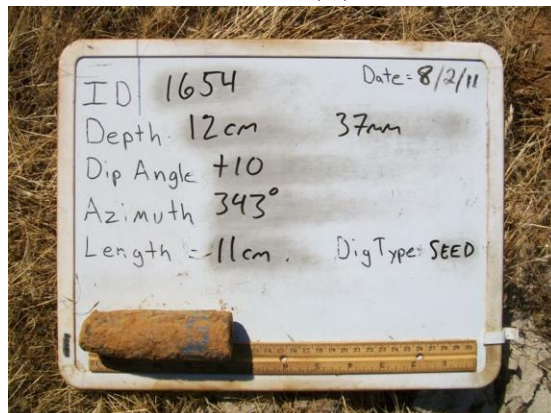 ID 1654 Date = 8/2/11
Depth 12cm 37mm
Dip Angle +10
Azimuth 343°
Length = 11cm. Dig Type: SEED